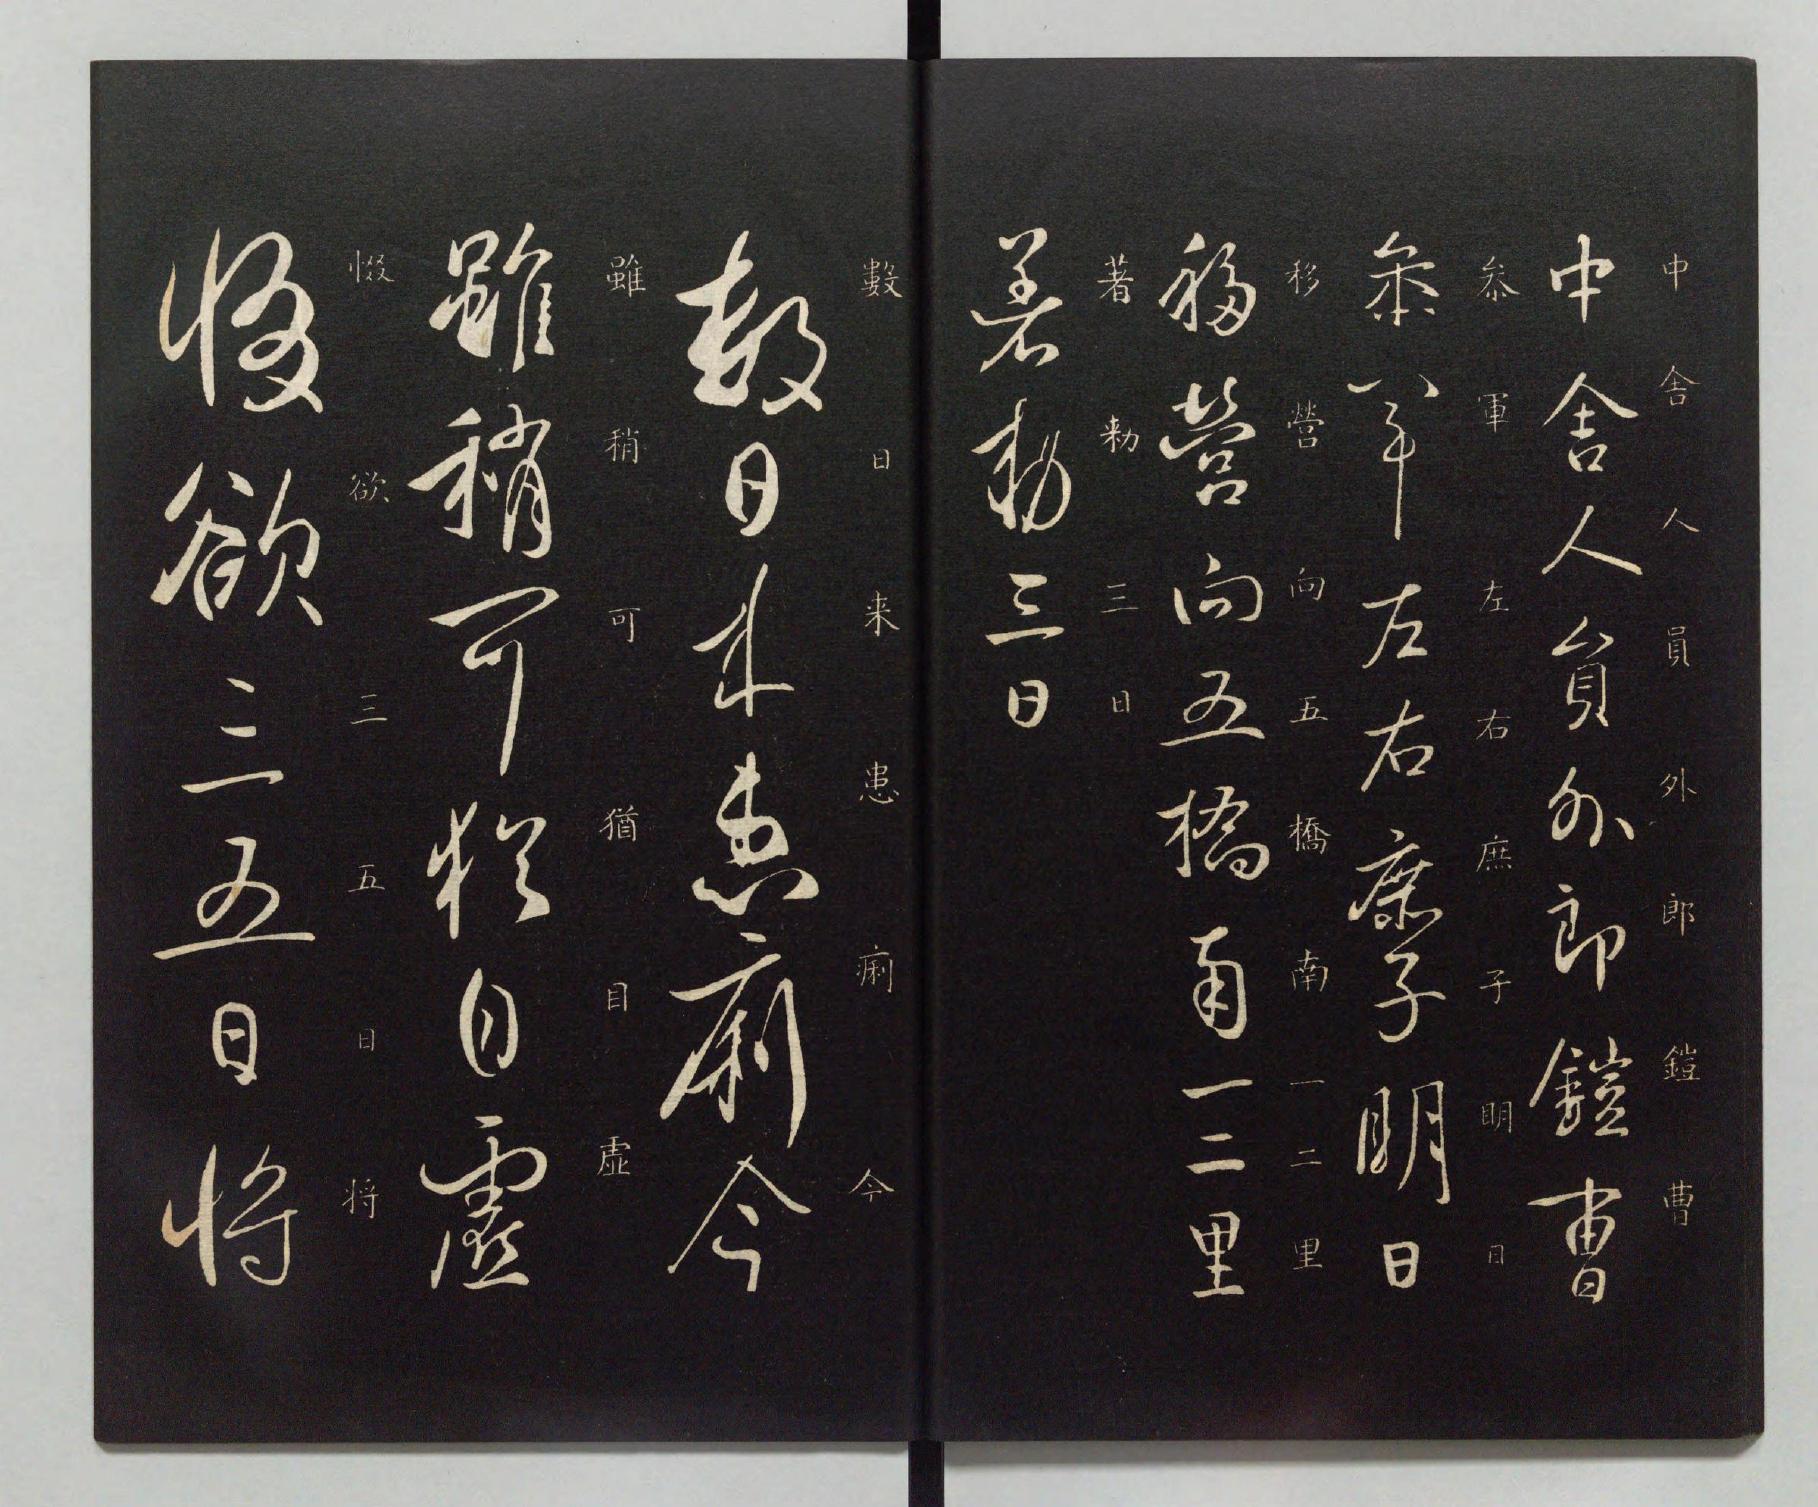 中舍人員外郎鎧曹
中舍人員外郎鎧曹
叅軍左右庶子明日
叅軍左右庶子明日
移營向五橋南一二里
移營向五橋南一二里
著勑三日
著勑三日
數日来患痢今
數日来患痢今
雖稍可猶自虛
雖稍可猶目虚
惙欲三五日将
惙欲三五日将